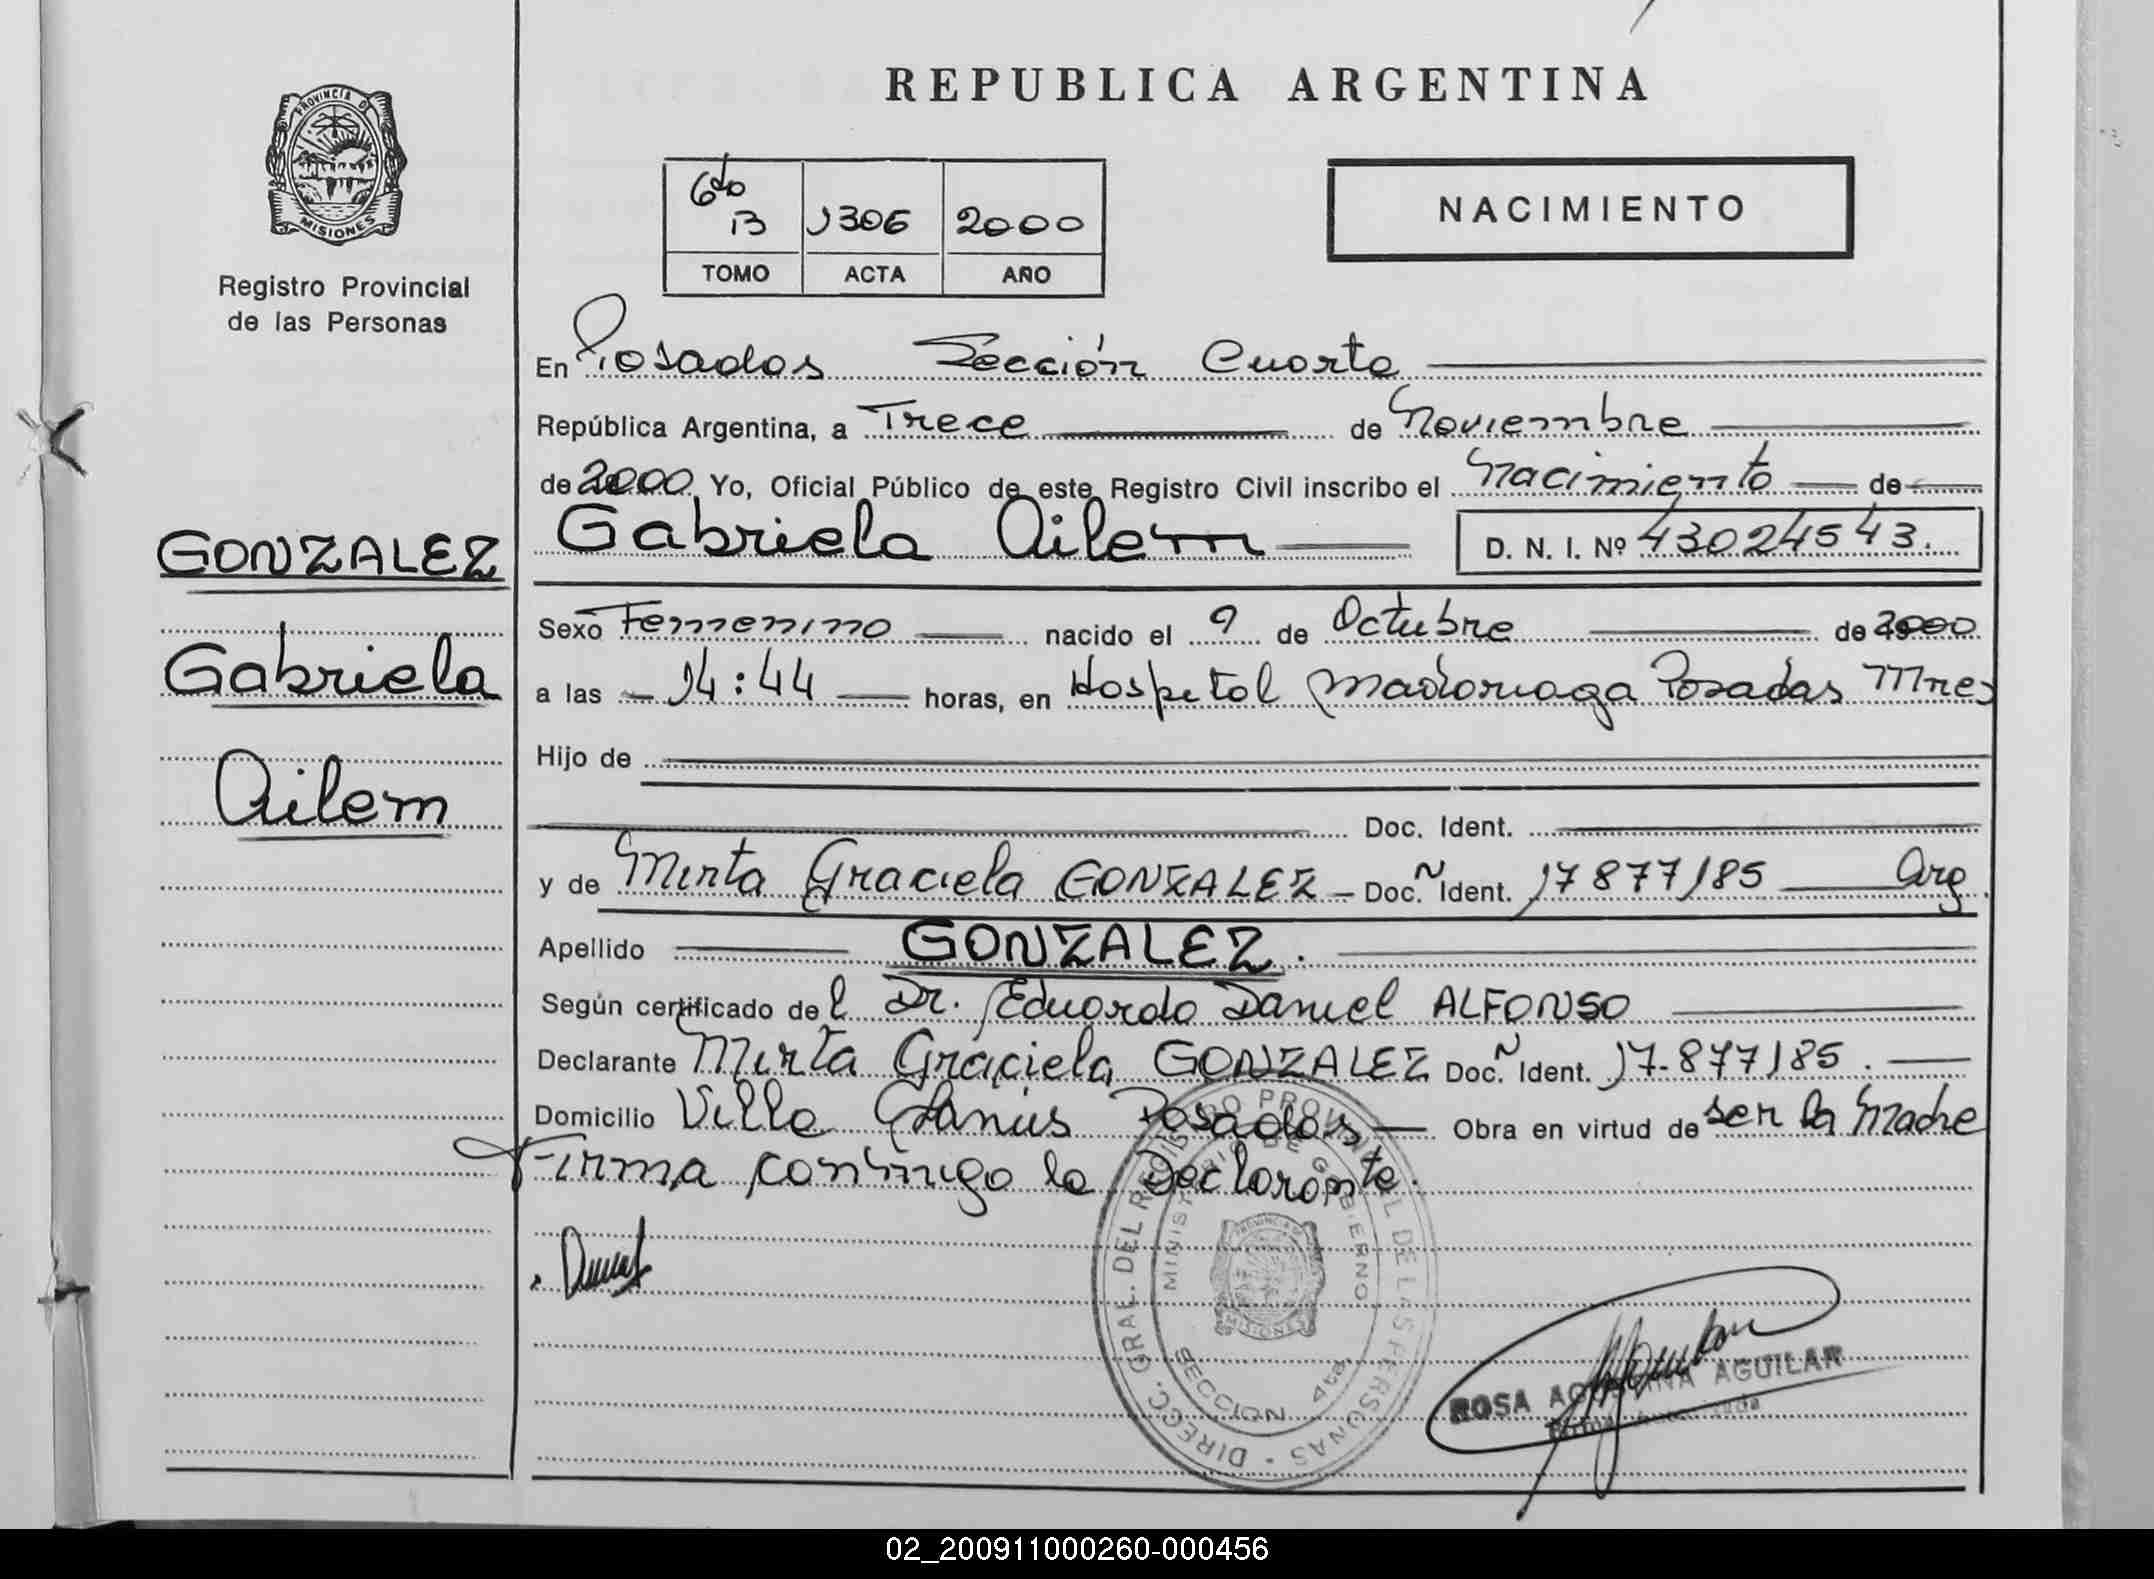 REPUBLICA ARGENTINA
PROVINCIA DE
MISIONES
Registro Provincial
de las Personas
6to B 1306 2000
TOMO ACTA AÑO
NACIMIENTO
En Posadas Sección Cuarta
República Argentina, a Trece de Noviembre
de 2000 Yo, Oficial Público de este Registro Civil inscribo el Nacimiento de
Gabriela Ailem D. N. I. Nº 43024543.
GONZALEZ
Gabriela
Ailem
Sexo Femenino nacido el 9 de Octubre de 2000
a las 14:44 horas, en Hospital Madariaga Posadas Mnes
Hijo de
Doc. Ident.
y de Mirta Graciela GONZALEZ Doc. Ident. 17877185 Arg
Apellido GONZALEZ.
Según certificado del Dr. Eduardo Daniel ALFONSO
Declarante Mirta Graciela GONZALEZ Doc. Ident. 17.877185.
Domicilio Villa Lanus Posadas Obra en virtud de ser la Madre
Firma conmigo la Declarante.
DIRECC. GRAL. DEL REGISTRO PROVINCIAL DE LAS PERSONAS
MINISTERIO DE GOBIERNO
PROVINCIA DE
MISIONES
SECCION 4ta
ROSA AGUSTINA AGUILAR
02_200911000260-000456